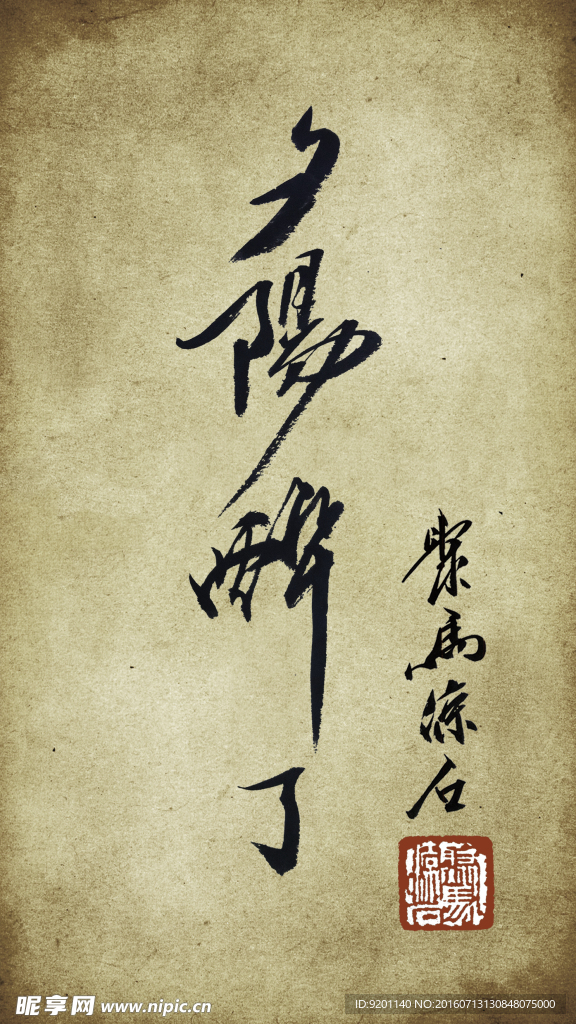 夕陽醉了
聚馬涼石
昵享网 www.nipic.cn
ID:9201140 NO:20160713130848075000